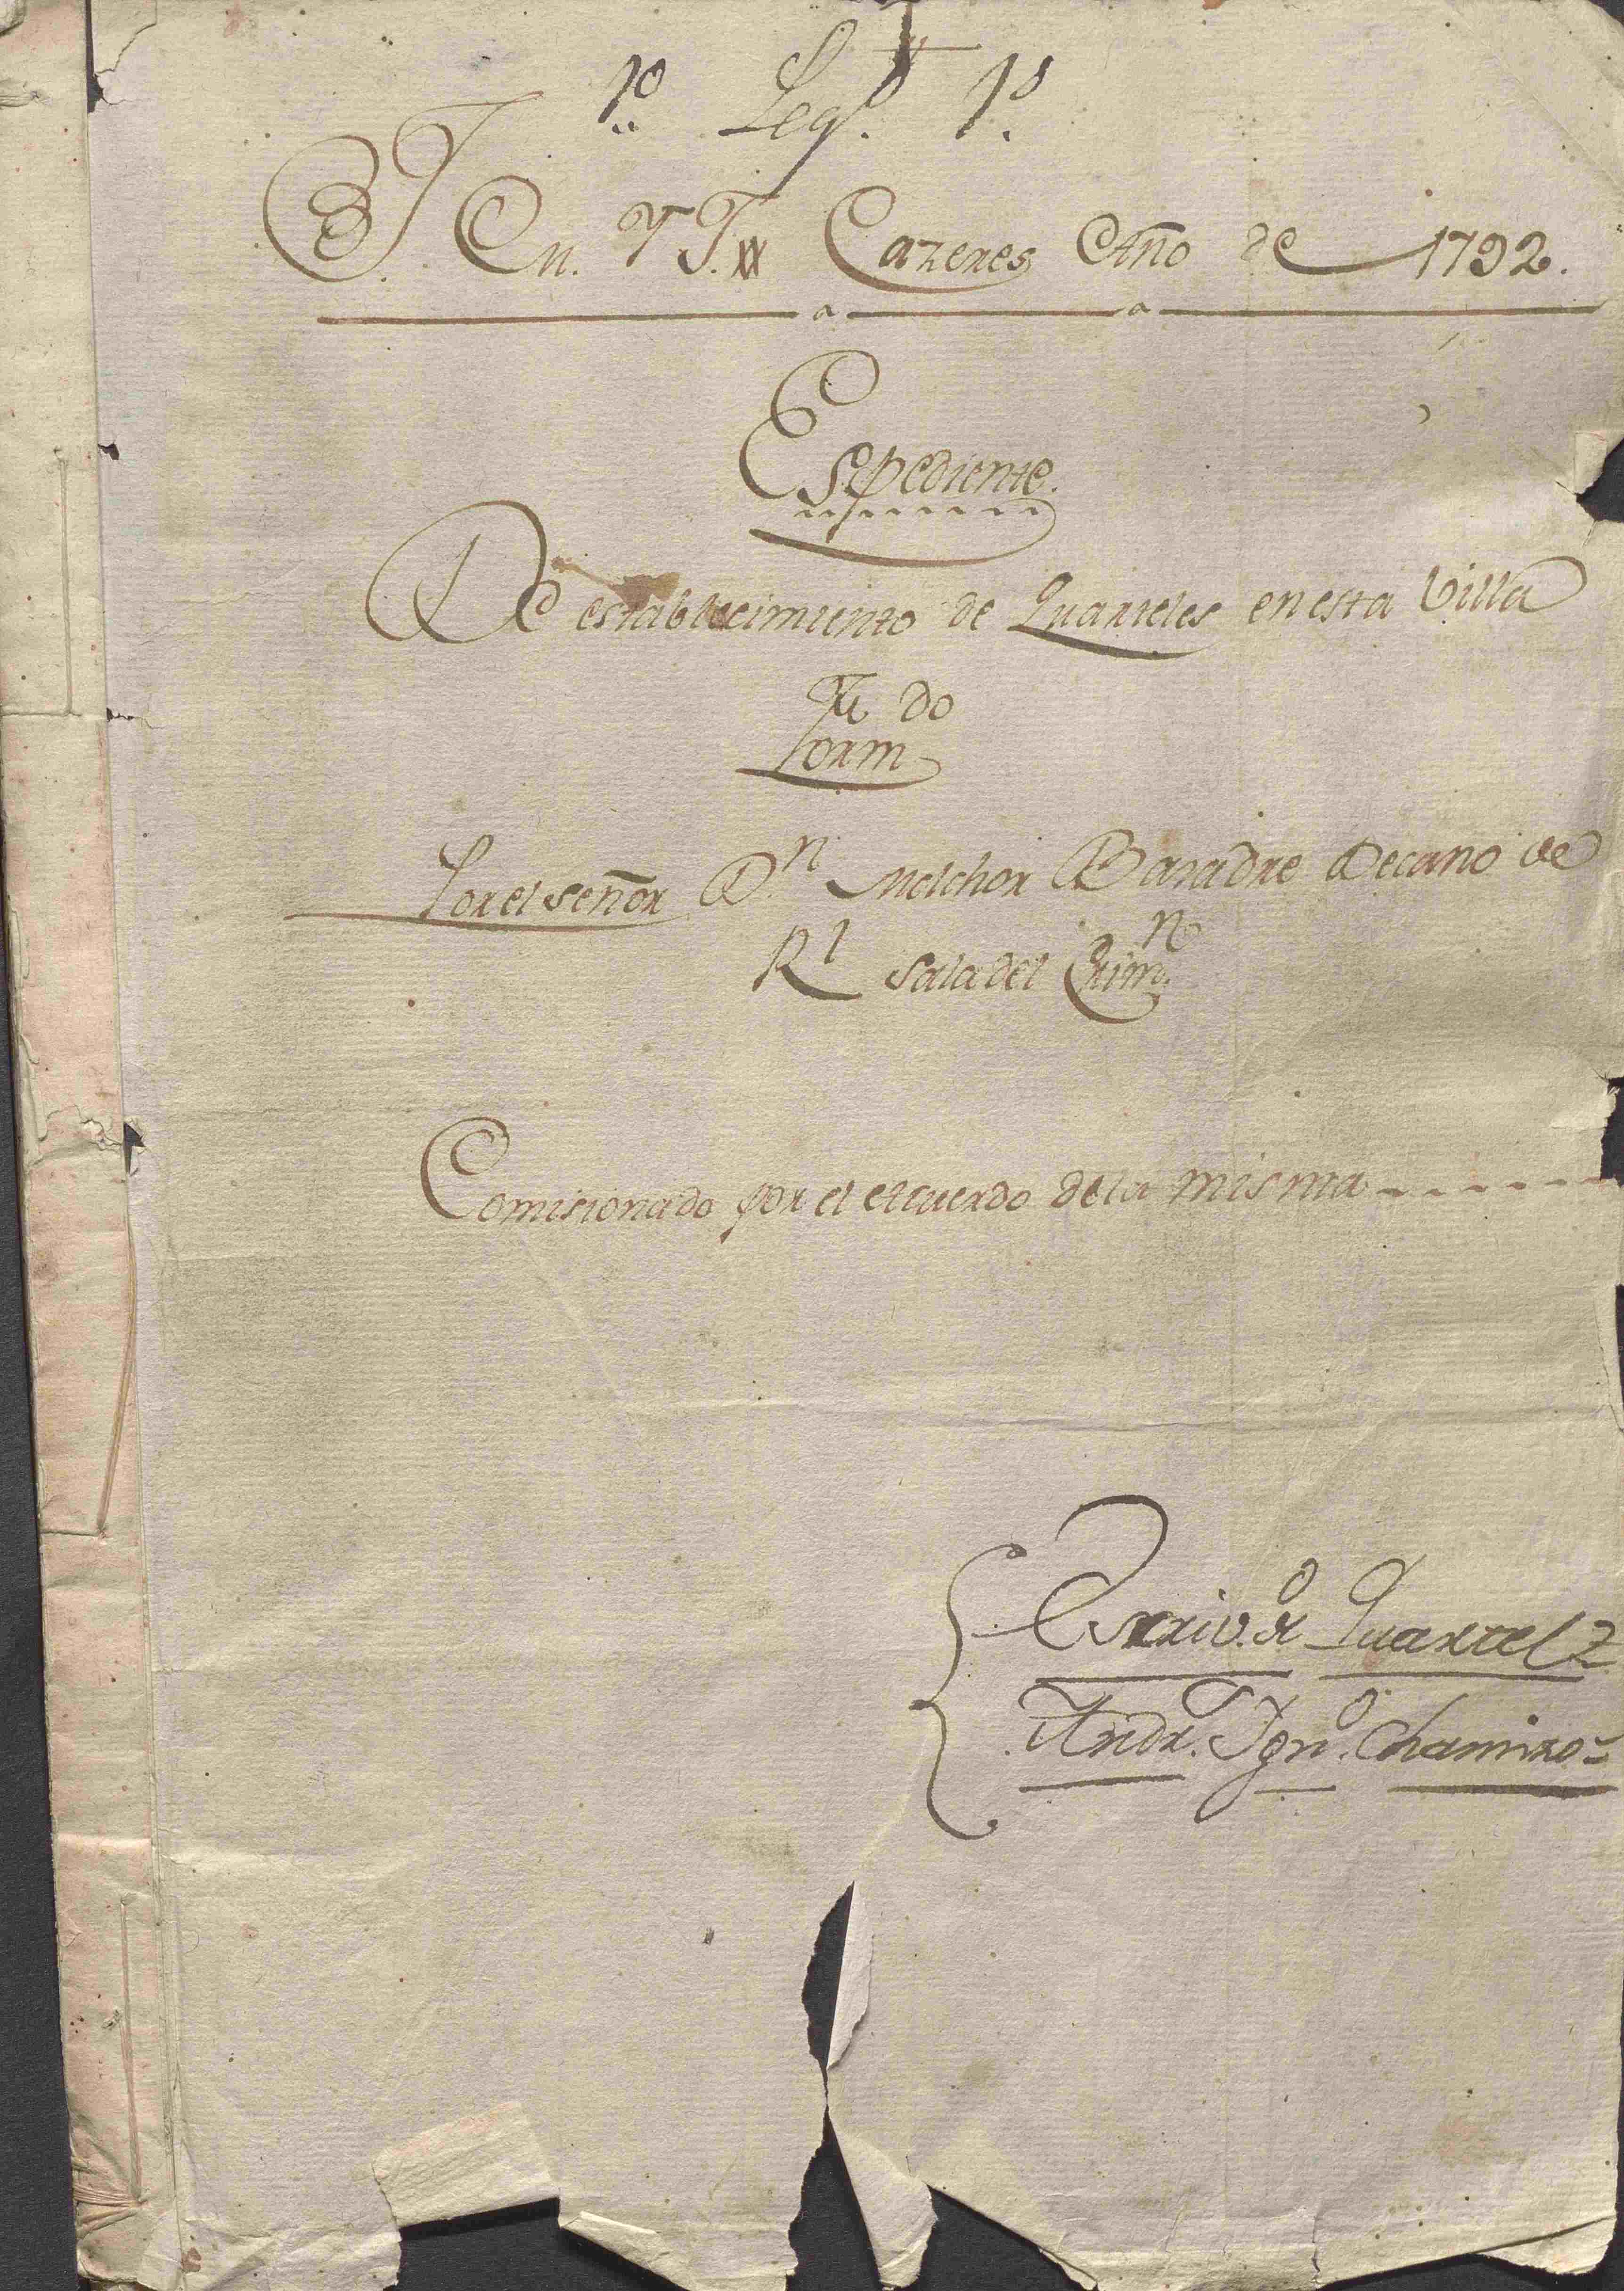 1º Legº 1º
Cazeres Año de 1792.
Espediente
De establecimiento de Quarteles en esta Villa
form do
Por el señor Dn Melchor Basadre Decano de
Rl Sala del Crimn
Comisionado por el acuerdo de la misma
Escrivº de Quartel 2
Andr. Ignº Chamizo